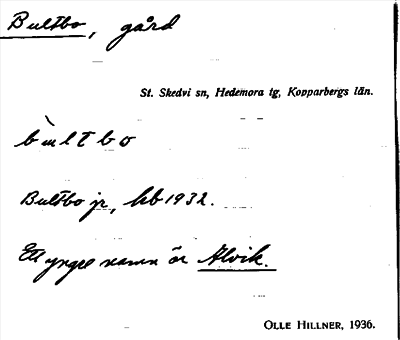 Bultbo, gård
St. Skedvi sn, Hedemora tg, Kopparbergs län.
bùltbo
Bultbo jr, hb 1932.
Ett yngre namn är Alvik.
OLLE HILLNER, 1936.